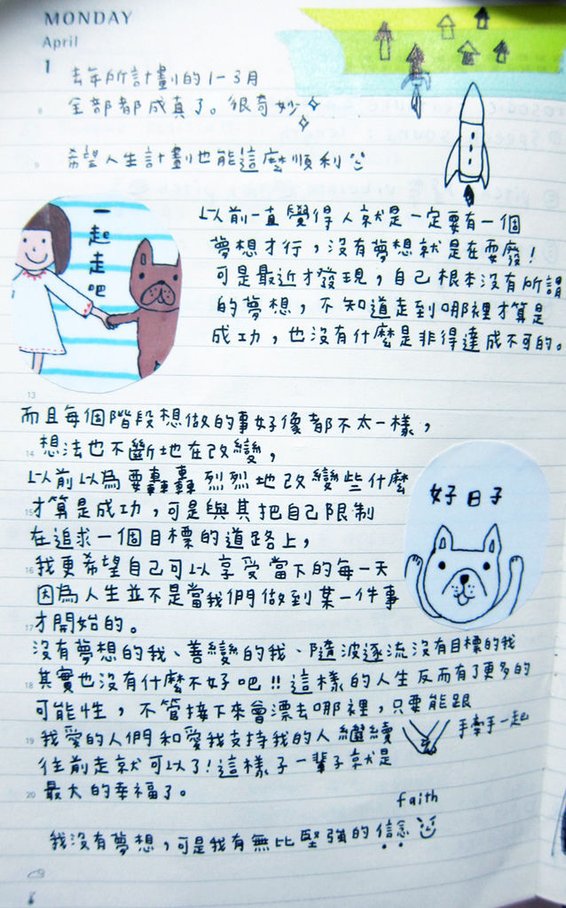 MONDAY
April
1
去年所計劃的1-3月
全部都成真了。很奇妙
希望人生計劃也能這麼順利
一起走吧
以前一直覺得人就是一定要有一個
夢想才行，沒有夢想就是在耍廢！
可是最近才發現，自己根本沒有所謂
的夢想，不知道走到哪裡才算是
成功，也沒有什麼是非得達成不可的。
13
而且每個階段想做的事好像都不太一樣，
14
想法也不斷地在改變，
以前以為要轟轟烈烈地改變些什麼
15
才算是成功，可是與其把自己限制
在追求一個目標的道路上，
好日子
16
我更希望自己可以享受當下的每一天
因為人生並不是當我們做到某一件事
17
才開始的。
沒有夢想的我、善變的我、隨波逐流沒有目標的我
18
其實也沒有什麼不好吧!!這樣的人生反而有了更多的
可能性，不管接下來會漂去哪裡，只要能跟
19
我愛的人們和愛我支持我的人繼續
手牽手一起
往前走就可以了!這樣子一輩子就是
20
最大的幸福了。
faith
我沒有夢想，可是我有無比堅強的信念